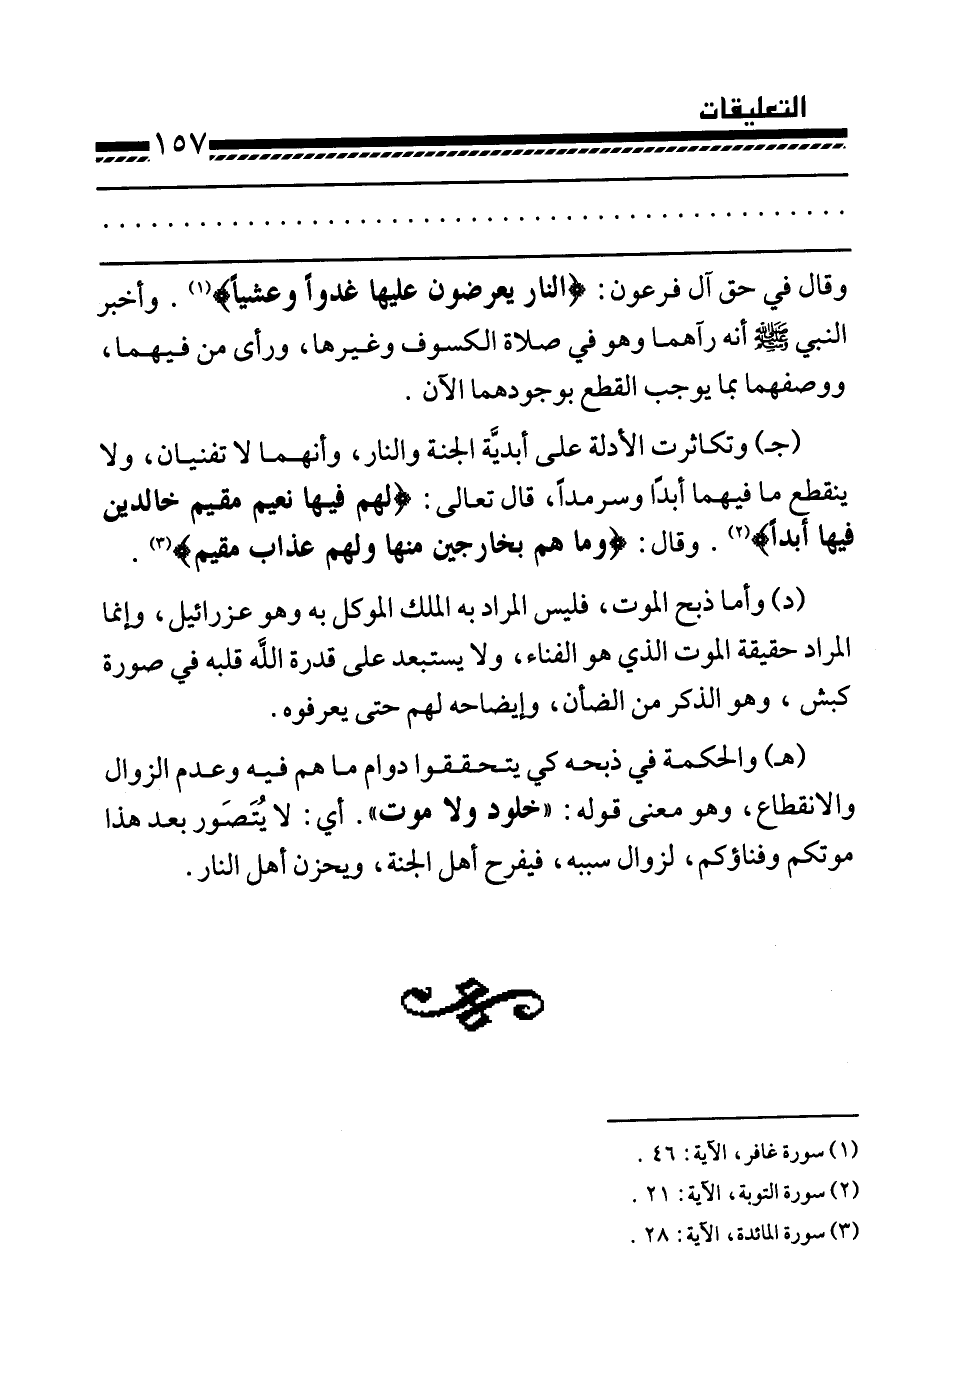 التعليقات
١٥٧
وقال في حق آل فرعون: ﴿النار يعرضون عليها غدواً وعشياً﴾(١) . وأخبر
النبي ﷺ أنه رآهما وهو في صلاة الكسوف وغيرها، ورأى من فيهما،
ووصفهما بما يوجب القطع بوجودهما الآن .
(جـ) وتكاثرت الأدلة على أبديَّة الجنة والنار، وأنهما لا تفنيان، ولا
ينقطع ما فيهما أبدًا وسرمداً، قال تعالى: ﴿لهم فيها نعيم مقيم خالدين
فيها أبداً﴾(٢) . وقال: ﴿وما هم بخارجين منها ولهم عذاب مقيم﴾(٣) .
(د) وأما ذبح الموت، فليس المراد به الملك الموكل به وهو عزرائيل، وإنما
المراد حقيقة الموت الذي هو الفناء، ولا يستبعد على قدرة اللَّه قلبه في صورة
كبش ، وهو الذكر من الضأن، وإيضاحه لهم حتى يعرفوه.
(هـ) والحكمة في ذبحه كي يتحققوا دوام ما هم فيه وعدم الزوال
والانقطاع، وهو معنى قوله: «خلود ولا موت». أي: لا يُتَصَور بعد هذا
موتكم وفناؤكم، لزوال سببه، فيفرح أهل الجنة، ويحزن أهل النار.
(١) سورة غافر، الآية: ٤٦ .
(٢) سورة التوبة، الآية: ٢١ .
(٣) سورة المائدة، الآية: ٢٨ .